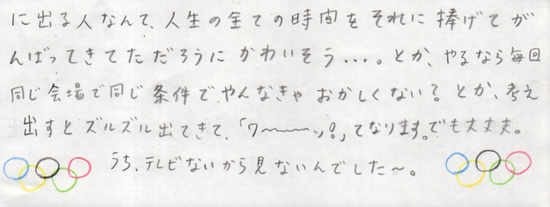 に出る人なんて、人生の全ての時間をそれに捧げてが
んばってきてただろうにかわいそう…。とか、やるなら毎回
同じ会場で同じ条件で、やんなきゃおかしくない？とか、考え
出すとズルズル出てきて、「ワ〜〜〜ッ!!」てなります。でも大丈夫。
うち、テレビないから見ないんでした〜。